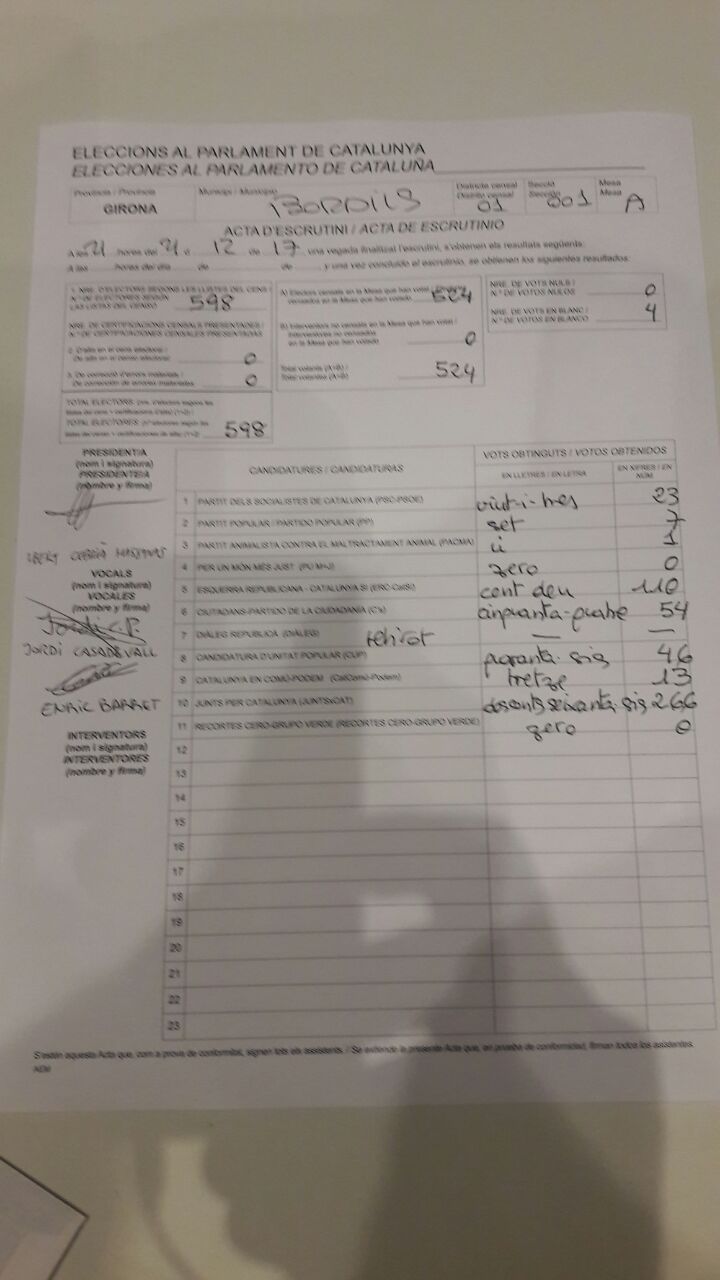 ELECCIONS AL PARLAMENT DE CATALUNYA
ELECCIONES AL PARLAMENTO DE CATALUÑA
Província / Provincia
GIRONA
Municipi / Municipio
BORDILS
Districte censal
Distrito censal
01
Secció
Sección
001
Mesa
Mesa
A
ACTA D'ESCRUTINI / ACTA DE ESCRUTINIO
A les 21 hores del 21 d 12 de 17 una vegada finalitzat l'escrutini, s'obtenen els resultats següents:
A las hores del día de de y una vez concluido el escrutinio, se obtienen los siguientes resultados:
1. NRE. D'ELECTORS SEGONS LES LLISTES DEL CENS /
N.º DE ELECTORES SEGÚN
LAS LISTAS DEL CENSO 598
NRE. DE CERTIFICACIONS CENSALS PRESENTADES /
N.º DE CERTIFICACIONES CENSALES PRESENTADAS
0
0
TOTAL ELECTORS
TOTAL ELECTORES
598
A) Electors censats en la Mesa que han votat
censados en la Mesa que han votado 524
B) Interventors no censats en la Mesa que han votat /
Interventores no censados
en la Mesa que han votado 0
Total votants (A+B) /
Total votantes (A+B) 524
NRE. DE VOTS NULS /
N.º DE VOTOS NULOS 0
NRE. DE VOTS EN BLANC /
N.º DE VOTOS EN BLANCO 4
PRESIDENT/A
(nom i signatura)
PRESIDENTE/A
(nombre y firma)
VOCALS
(nom i signatura)
VOCALES
(nombre y firma)
JORDI CASADEVALL
ENRIC BARRET
INTERVENTORS
(nom i signatura)
INTERVENTORES
(nombre y firma)
CANDIDATURES / CANDIDATURAS
VOTS OBTINGUTS / VOTOS OBTENIDOS
EN LLETRES / EN LETRA
EN XIFRES / EN NÚM.
1 PARTIT DELS SOCIALISTES DE CATALUNYA (PSC-PSOE) vint-i-tres 23
2 PARTIT POPULAR / PARTIDO POPULAR (PP) set 7
3 PARTIT ANIMALISTA CONTRA EL MALTRACTAMENT ANIMAL (PACMA) u 1
4 PER UN MÓN MÉS JUST (PUM+J) zero 0
5 ESQUERRA REPUBLICANA - CATALUNYA SÍ (ERC-CatSí) cent deu 110
6 CIUTADANS-PARTIDO DE LA CIUDADANÍA (C's) cinquanta-quatre 54
7 DIÀLEG REPUBLICÀ (DIÀLEG) retirat — —
8 CANDIDATURA D'UNITAT POPULAR (CUP) quaranta-sis 46
9 CATALUNYA EN COMÚ-PODEM (CatComú-Podem) tretze 13
10 JUNTS PER CATALUNYA (JUNTSxCAT) doscents seixanta-sis 266
11 RECORTES CERO-GRUPO VERDE (RECORTES CERO-GRUPO VERDE) zero 0
12
13
14
15
16
17
18
19
20
21
22
23
S'estén aquesta Acta que, com a prova de conformitat, signen tots els assistents. / Se extiende la presente Acta que, en prueba de conformidad, firman todos los asistentes.